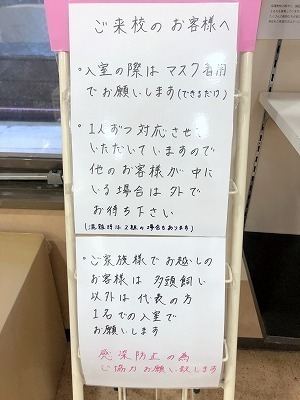 ご来校のお客様へ
・入室の際はマスク着用
でお願いします(できるだけ)
・1人ずつ対応させて
いただいていますので
他のお客様が中に
いる場合は外で
お待ち下さい
(混雑時は2組の場合もあります)
・ご家族様でお越しの
お客様は多頭飼い
以外は代表の方
1名での入室で
お願いします
感染防止の為
ご協力お願い致します